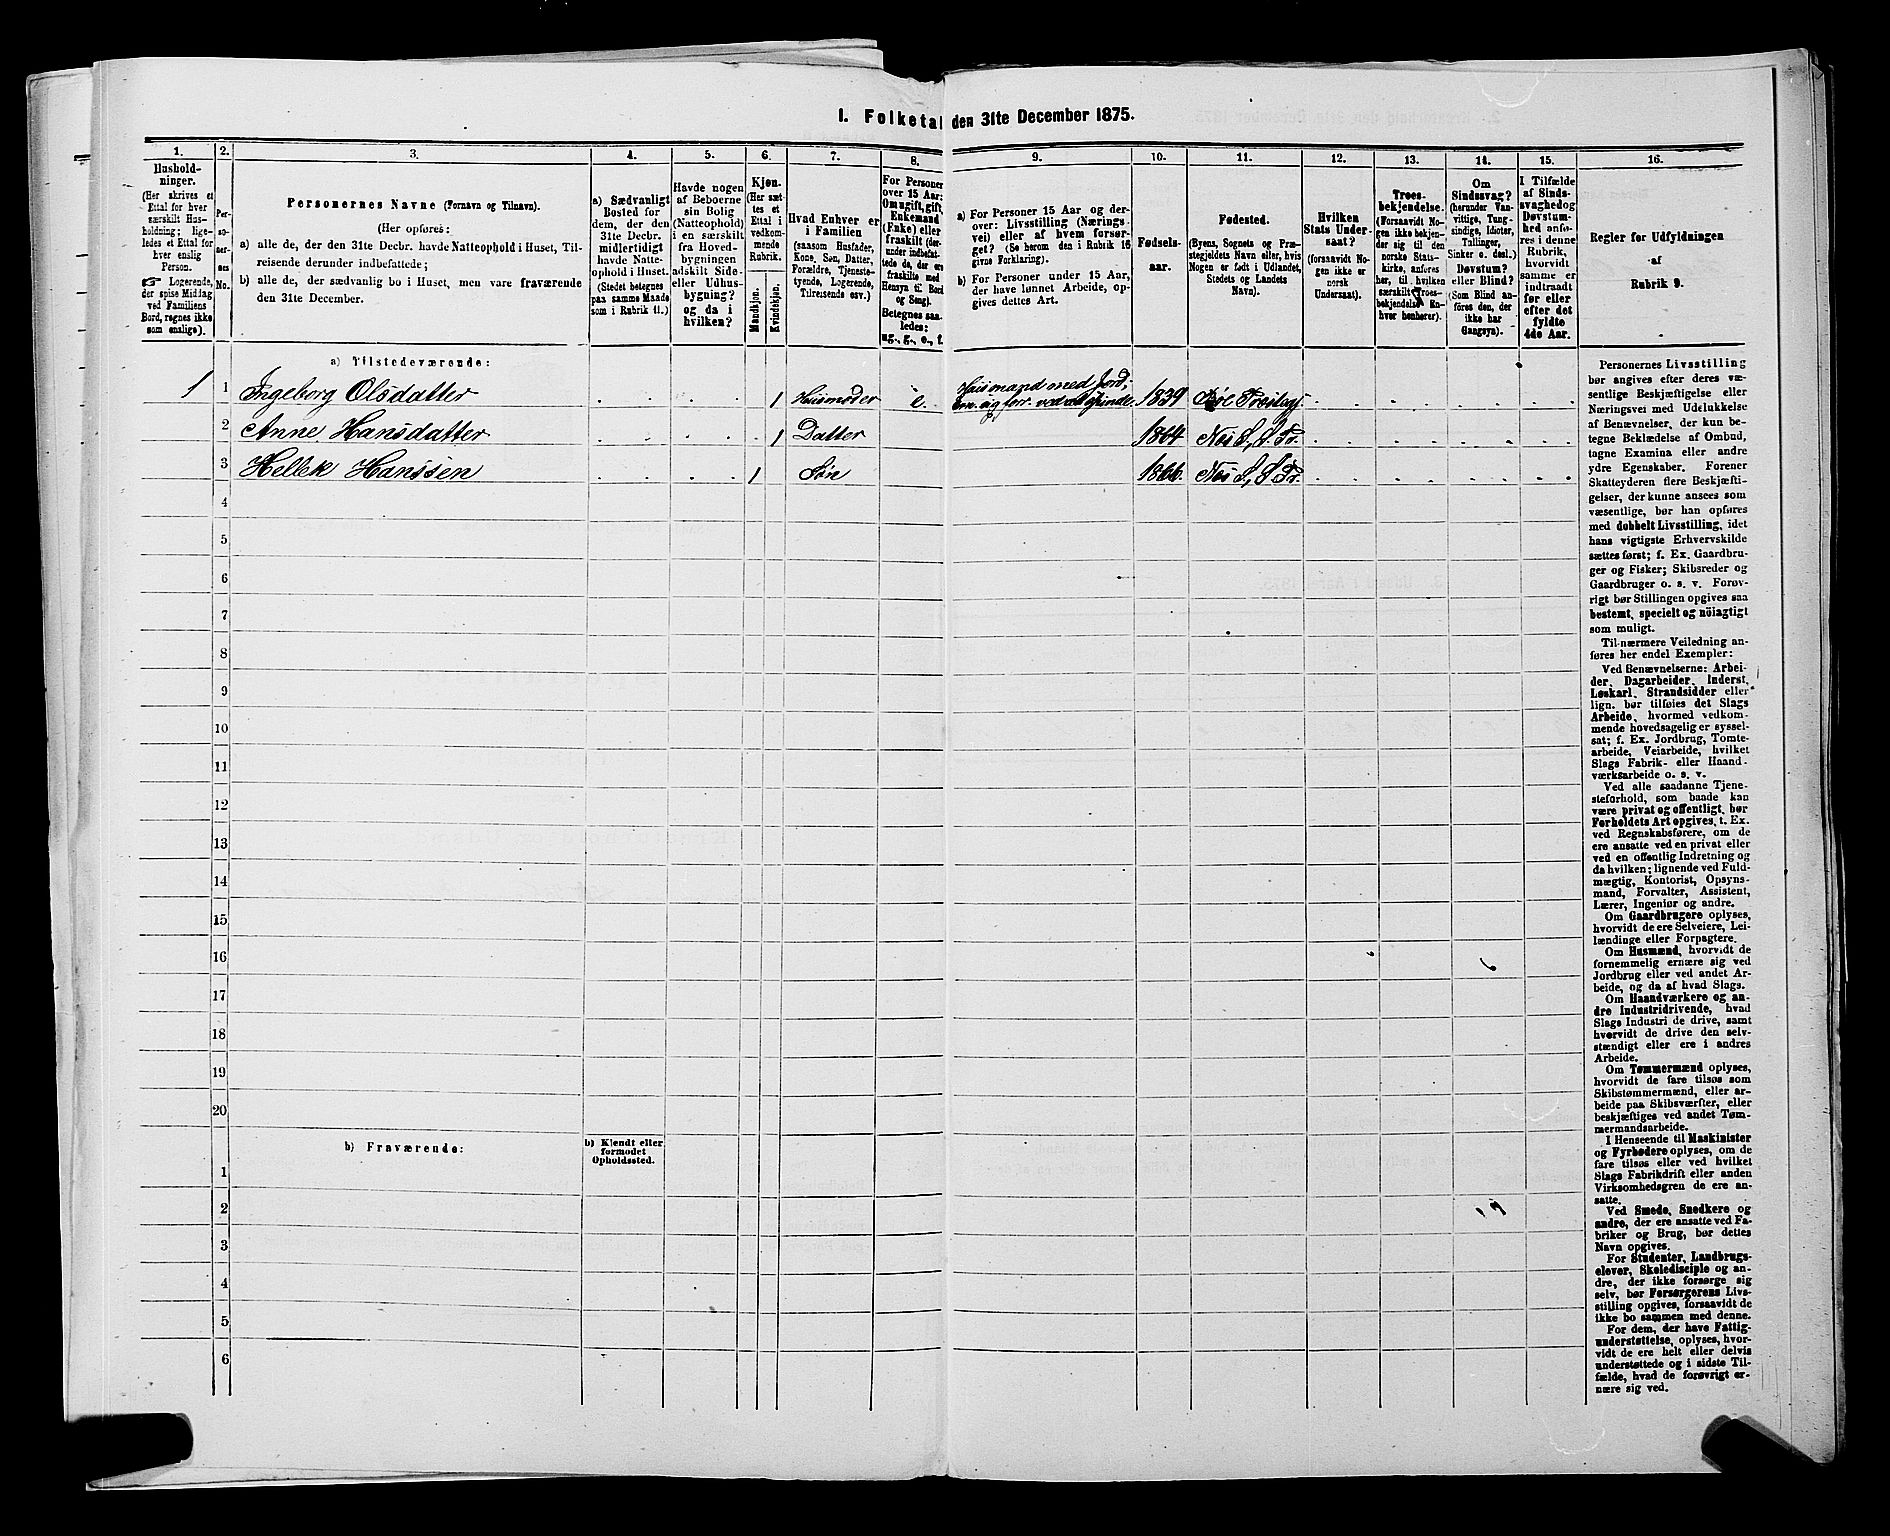 1. Folketal den 31te December 1875.
1. 2. 3. 4. 5. 6. 7. 8. 9. 10. 11. 12. 13. 14. 15. 16.
Hushold-
ninger.
(Her skrives et
Ettal for hver
særskilt Hus-
holdning; lige-
ledes et Ettal for
hver enslig
Person.
☞ Logerende,
der spise Middag
ved Familiens
Bord, regnes ikke
som enslige).
Per-
so-
ner-
nes
No.
Personernes Navne (Fornavn og Tilnavn).
(Her opføres:
a) alle de, der den 31te Decbr. havde Natteophold i Huset, Til-
reisende derunder indbefattede;
b) alle de, der sædvanlig bo i Huset, men vare fraværende
den 31te December.
a) Sædvanligt
Bosted for
dem, der den
31te Decbr.
midlertidigt
havde Natte-
ophold i Huset.
(Stedet betegnes
paa samme Maade
som i Rubrik 11.)
Havde nogen
af Beboerne
sin Bolig
(Natteophold)
i en særskilt
fra Hoved-
bygningen
adskilt Side-
eller Udhus-
bygning?
og da i
hvilken?
Kjøn.
(Her sæt-
tes et
Ettal i
vedkom-
mende
Rubrik.
Mandkjøn.
Kvindekjøn.
Hvad Enhver er
i Familien
(saasom Husfader,
Kone, Søn, Datter,
Forældre, Tjeneste-
tyende, Logerende,
Tilreisende osv.)
For Personer
over 15 Aar:
Om ugift, gift,
Enkemand
(Enke) eller
fraskilt (der-
under indbefat-
tede de, der ere
fraskilte med
Hensyn til Bord
og Seng).
Betegnes saa-
ledes:
ug., g., e., f.
a) For Personer 15 Aar og der-
over: Livsstilling (Nærings-
vei) eller af hvem forsør-
get? (Se herom den i Rubrik 16
givne Forklaring).
b) For Personer under 15 Aar,
der have lønnet Arbeide, op-
gives dettes Art.
Fødsels-
aar.
Fødested.
(Byens, Sognets og Præ-
stegjeldets Navn eller, hvis
Nogen er født i Udlandet,
Stedets og Landets
Navn).
Hvilken
Stats Under-
saat?
(forsaavidt No-
gen ikke er
norsk
Undersaat).
Troes-
bekjendelse.
(Forsaavidt No-
gen ikke bekjen-
der sig til den
norske Stats-
kirke, anføres
her, til hvilken
særskilt Troes-
bekjendelse En-
hver henhører).
Om
Sindssvag?
(herunder Van-
vittige, Tung-
sindige, Idioter,
Tullinger,
Sinker o. desl.)
Døvstum?
eller Blind?
(Som Blind an-
føres den, der
ikke har
Gangsyn).
I Tilfælde
af Sinds-
svaghed og
Døvstum-
hed anfø-
res i denne
Rubrik,
hvorvidt
samme er
indtraadt
før eller
efter det
fyldte
4de Aar.
Regler for Udfyldningen
af
Rubrik 9.
a) Tilstedeværende:
1 1 Ingeborg Olsdatter 1 Husmoder e. Husmand med Jord; 1839
2 Anne Hansdatter 1 Datter 1864 Nes S., S Pr.
3 Hellek Hanssen 1 Søn 1866. Nes S., S Pr.
4
5
6
7
8
9
10
11
12
13
14
15
16
17
18
19
20
b) Fraværende:
b) Kjendt eller
formodet
Opholdssted.
1
2
3
4
5
6
Personernes Livsstilling
bør angives efter deres væ-
sentlige Beskjæftigelse eller
Næringsvei med Udelukkelse
af Benævnelser, der kun be-
tegne Beklædelse af Ombud,
tagne Examina eller andre
ydre Egenskaber. Forener
Skatteyderen flere Beskjæfti-
gelser, der kunne ansees som
væsentlige, bør han opføres
med dobbelt Livsstilling, idet
hans vigtigste Erhvervskilde
sættes først; f. Ex. Gaardbru-
ger og Fisker; Skibsreder og
Gaardbruger o. s. v. Forøv-
rigt bør Stillingen opgives saa
bestemt, specielt og nöiagtigt
som muligt.
Til nærmere Veiledning an-
føres her endel Exempler:
Ved Benævnelserne: Arbei-
der, Dagarbeider, Inderst,
Løskarl, Strandsidder eller
lign. bør tilføies det Slags
Arbeide, hvormed vedkom-
mende hovedsagelig er syssel-
sat; f. Ex. Jordbrug, Tomte-
arbeide, Veiarbeide, hvilket
Slags Fabrik- eller Haand-
værksarbeide o. s. v.
Ved alle saadanne Tjene-
steforhold, som baade kan
være privat og offentligt, bør
Forholdets Art opgives, t. Ex.
ved Regnskabsførere, om de
ere ansatte ved en privat eller
ved en offentlig Indretning og
da hvilken; lignende ved Fuld-
mægtig, Kontorist, Opsyns-
mand, Forvalter, Assistent,
Lærer, Ingeniør og andre.
Om Gaardbrugere oplyses,
hvorvidt de ere Selveiere, Lei-
lændinge eller Forpagtere.
Om Husmænd, hvorvidt de
fornemmelig ernære sig ved
Jordbrug eller ved andet Ar-
beide, og da af hvad Slags.
Om Haandværkere og an-
dre Industridrivende, hvad
Slags Industri de drive, samt
hvorvidt de drive den selv-
stændigt eller ere i andres
Arbeide.
Om Tømmermænd oplyses,
hvorvidt de fare tilsøs som
Skibstømmermænd, eller ar-
beide paa Skibsværfter, eller
beskjæftiges ved andet Tøm-
mermandsarbeide.
I Henseende til Maskinister
og Fyrbødere oplyses, om de
fare tilsøs eller ved hvilket
Slags Fabrikdrift eller anden
Virksomhedsgren de ere an-
satte.
Ved Smede, Snedkere og
andre, der ere ansatte ved Fa-
briker og Brug, bør dettes
Navn opgives.
For Studenter, Landbrugs-
elever, Skoledisciple og an-
dre, der ikke forsørge sig
selv, bør Forsørgerens Livs-
stilling opgives, forsaavidt de
ikke bo sammen med denne.
For dem, der have Fattig-
understøttelse, oplyses, hvor-
vidt de ere helt eller delvis
understøttede og i sidste Til-
fælde, hvad de forøvrigt er-
nære sig ved.